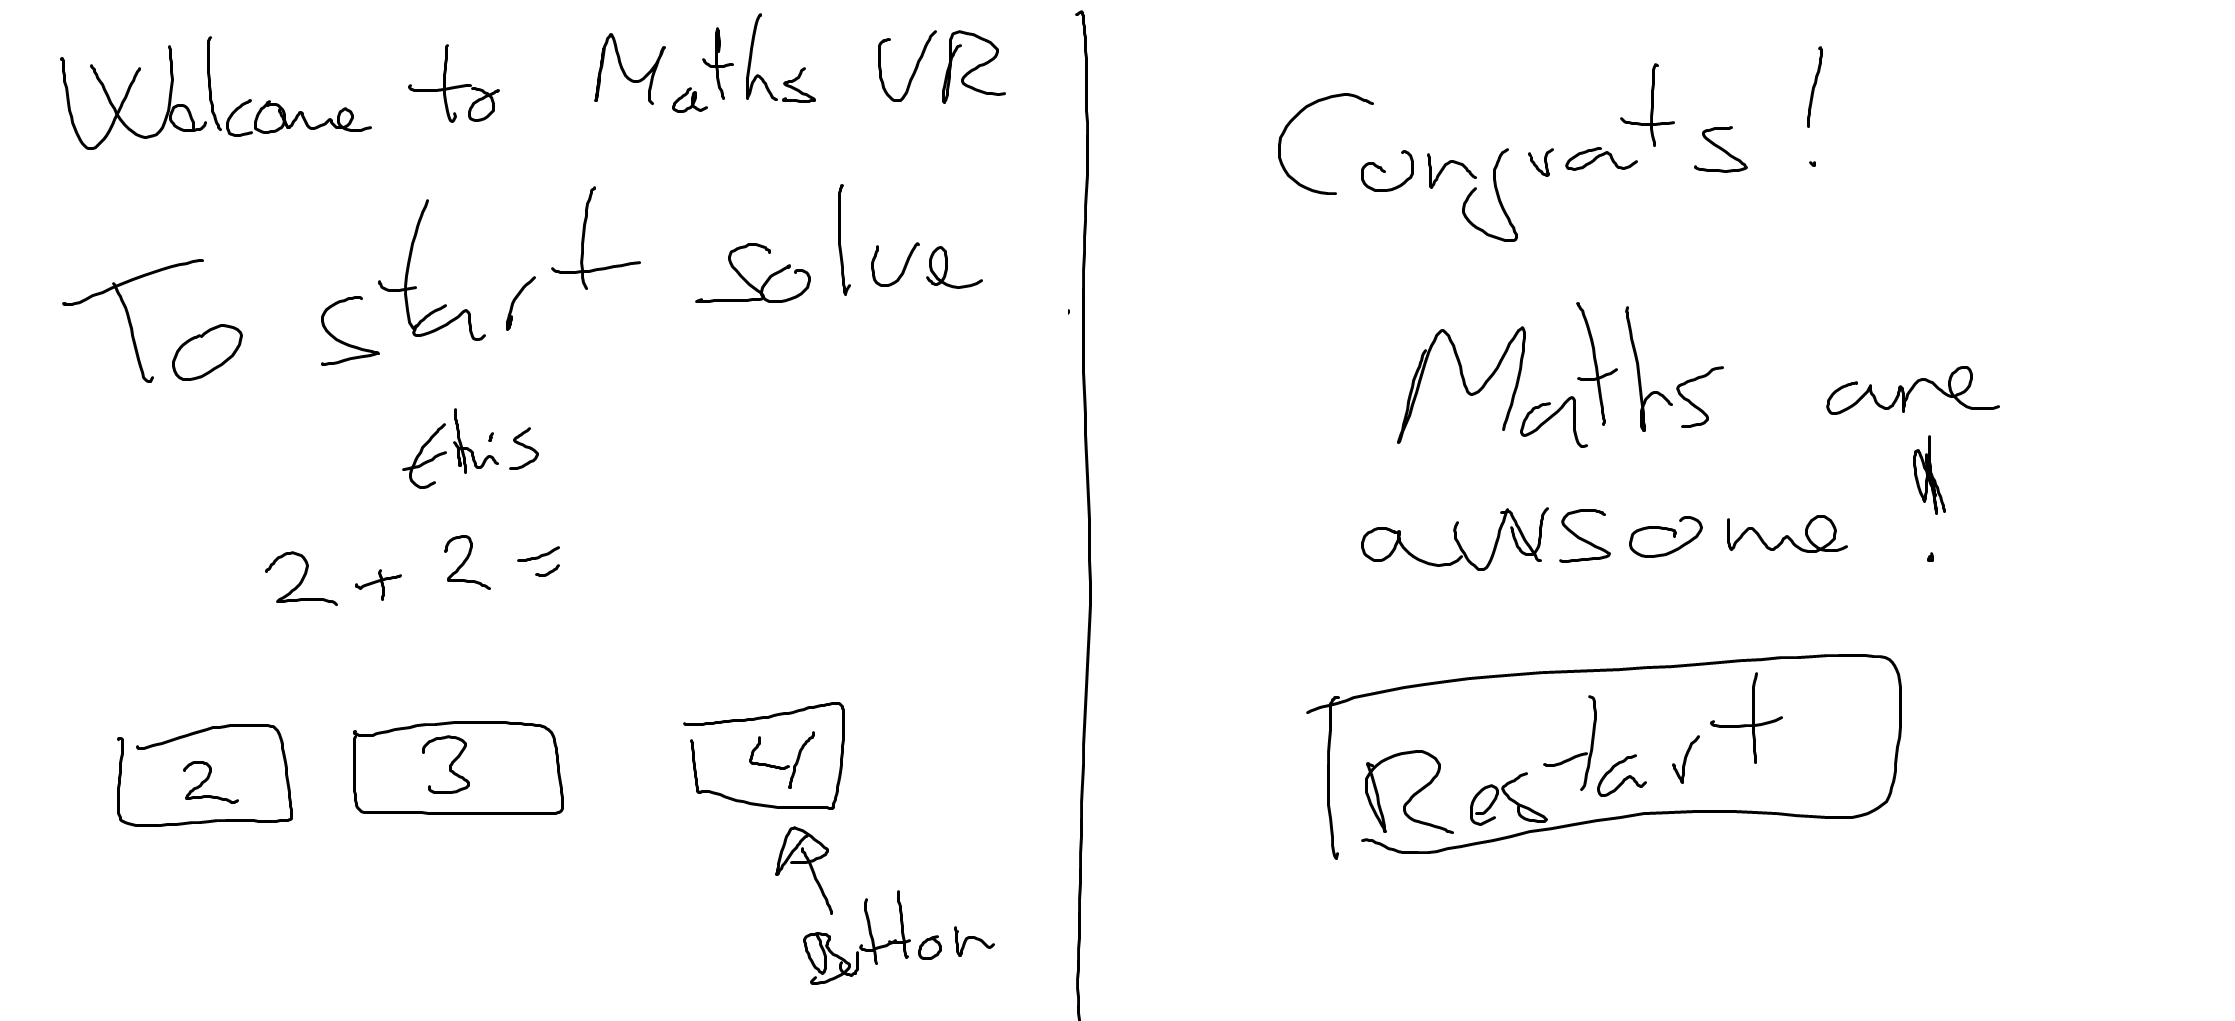 Welcome to Maths VR
To start solve
this
2 + 2 =
2 3 4
Button
Congrats!
Maths are
awsome!
Restart